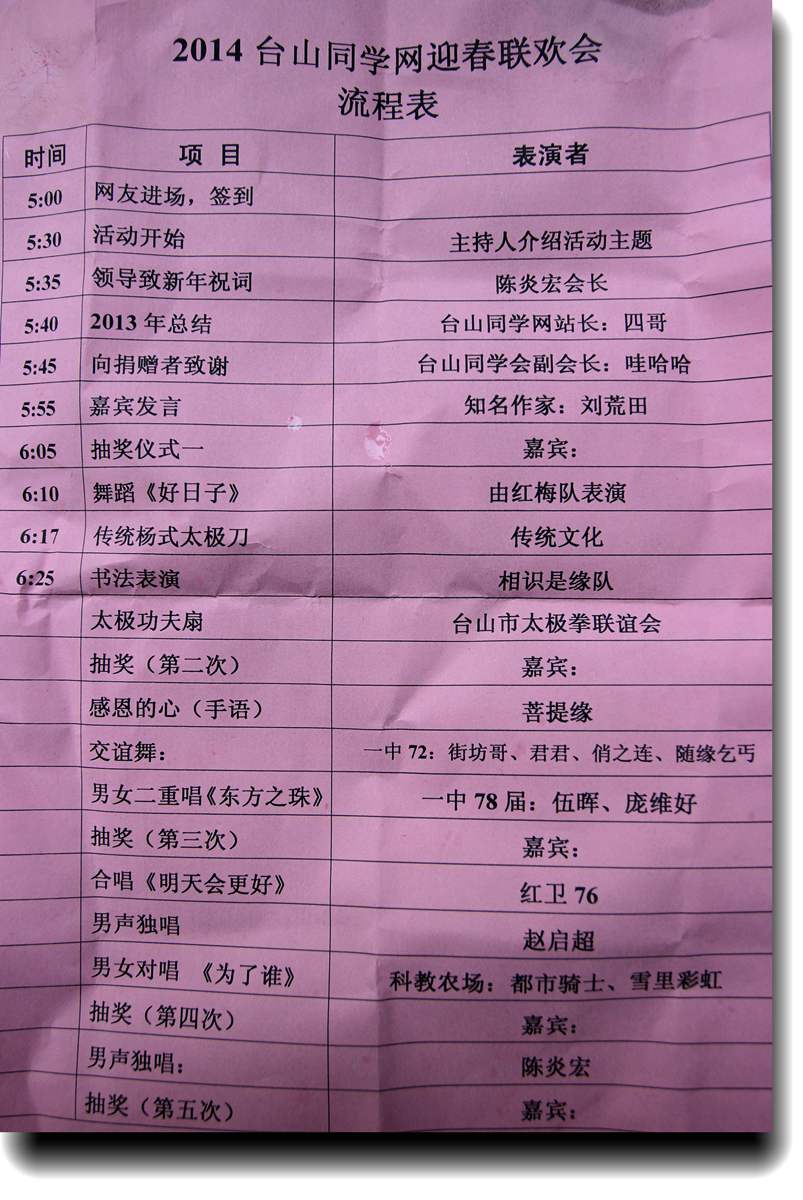 2014 台山同学网迎春联欢会
流程表
时间 项 目 表演者
5:00 网友进场，签到
5:30 活动开始 主持人介绍活动主题
5:35 领导致新年祝词 陈炎宏会长
5:40 2013 年总结 台山同学网站长：四哥
5:45 向捐赠者致谢 台山同学会副会长：哇哈哈
5:55 嘉宾发言 知名作家：刘荒田
6:05 抽奖仪式一 嘉宾：
6:10 舞蹈《好日子》 由红梅队表演
6:17 传统杨式太极刀 传统文化
6:25 书法表演 相识是缘队
太极功夫扇 台山市太极拳联谊会
抽奖（第二次） 嘉宾：
感恩的心（手语） 菩提缘
交谊舞： 一中 72：街坊哥、君君、俏之连、随缘乞丐
男女二重唱《东方之珠》 一中 78 届：伍晖、庞维好
抽奖（第三次） 嘉宾：
合唱《明天会更好》 红卫 76
男声独唱 赵启超
男女对唱 《为了谁》 科教农场：都市骑士、雪里彩虹
抽奖（第四次） 嘉宾：
男声独唱： 陈炎宏
抽奖（第五次） 嘉宾：